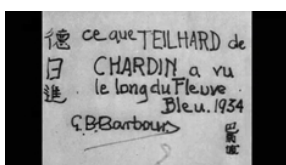 德日進
ce que TEILHARD de
CHARDIN a vu
le long du Fleuve
Bleu. 1934
G.B.Barbour